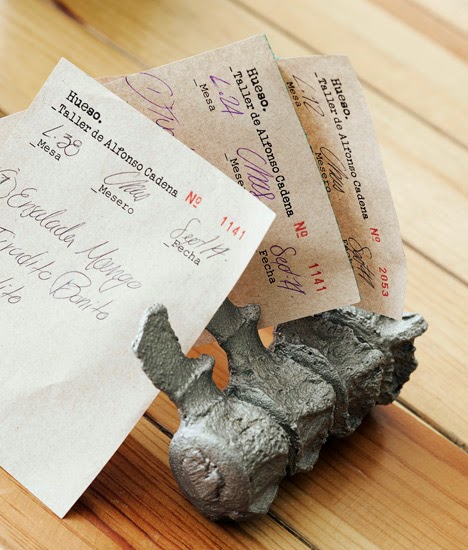 Hueso.
_Taller de Alfonso Cadena
L. 38
_Mesa
Chav
_Mesero
Nº 1141
Sept 14.
_Fecha
Ensalada Mango
Tiradito Bonito
Hueso.
_Taller de Alfonso Cadena
L. 24
_Mesa
Chav
_Mesero
Nº 1141
Sept 14.
_Fecha
Hueso.
_Taller de Alfonso Cadena
_Mesa
Chav
_Mesero
Nº 2053
Sept 14
_Fecha